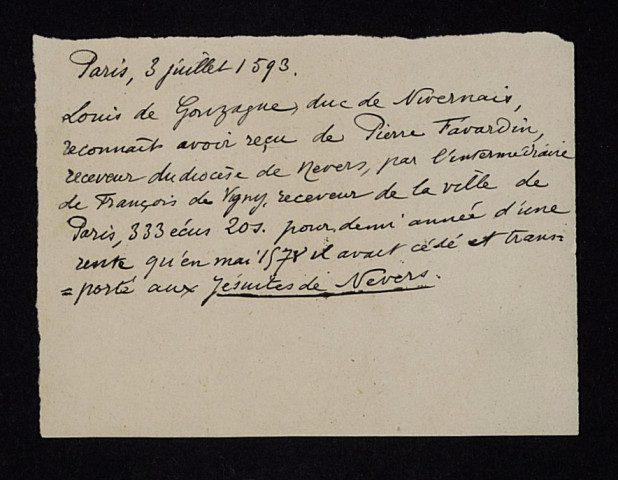 Paris, 3 juillet 1593.
Louis de Gonzague, duc de Nivernais,
reconnait avoir reçu de Pierre Favardin,
receveur du diocèse de Nevers, par l'intermédiaire
de François de Vigny, receveur de la ville de
Paris, 333 écus 20 s. pour demi année d'une
rente qu'en mai 1578 il avait cédé et trans-
=porté aux Jésuites de Nevers.